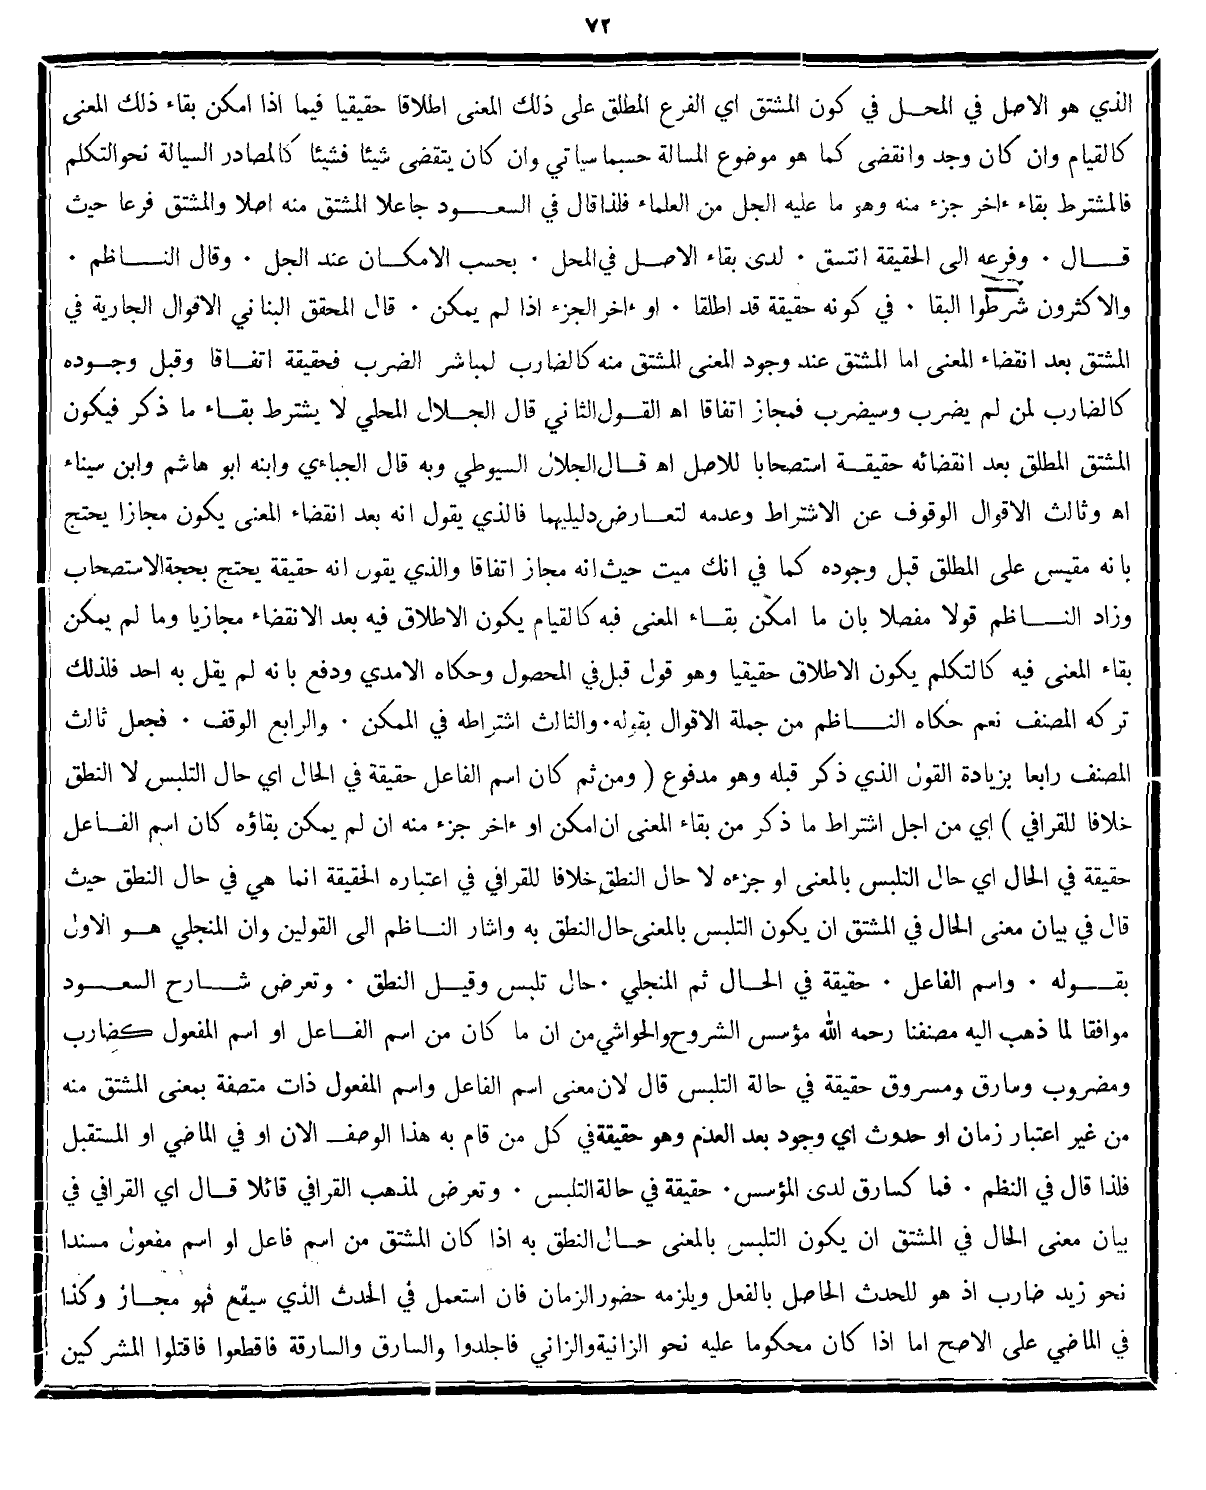 ٧٢
الذي هو الاصل في المحل في كون المشتق اي الفرع المطلق على ذلك المعنى اطلاقا حقيقيا فيما اذا امكن بقاء ذلك المعنى
كالقيام وان كان وجد وانقضى كما هو موضوع المسالة حسبما سياتي وان كان يتقضى شيئا فشيئا كالمصادر السيالة نحو التكلم
فالمشترط بقاء ءاخر جزء منه وهو ما عليه الجل من العلماء فلذا قال في السعود جاعلا المشتق منه اصلا والمشتق فرعا حيث
قال ٠ وفرعه الى الحقيقة انتسق ٠ لدى بقاء الاصل في المحل ٠ بحسب الامكان عند الجل ٠ وقال الناظم ٠
والاكثرون شرطوا البقا ٠ في كونه حقيقة قد اطلقا ٠ او ءاخر الجزء اذا لم يمكن ٠ قال المحقق البناني الاقوال الجارية في
المشتق بعد انقضاء المعنى اما المشتق عند وجود المعنى المشتق منه كالضارب لمباشر الضرب فحقيقة اتفاقا وقبل وجوده
كالضارب لمن لم يضرب وسيضرب فمجاز اتفاقا اه القول الثاني قال الجلال المحلي لا يشترط بقاء ما ذكر فيكون
المشتق المطلق بعد انقضائه حقيقة استصحابا للاصل اه قال الجلال السيوطي وبه قال الجباءي وابنه ابو هاشم وابن سيناء
اه وثالث الاقوال الوقوف عن الاشتراط وعدمه لتعارض دليليهما فالذي يقول انه بعد انقضاء المعنى يكون مجازا يحتج
بانه مقيس على المطلق قبل وجوده كما في انك ميت حيث انه مجاز اتفاقا والذي يقول انه حقيقة يحتج بحجة الاستصحاب
وزاد الناظم قولا مفصلا بان ما امكن بقاء المعنى فبه كالقيام يكون الاطلاق فيه بعد الانقضاء مجازيا وما لم يمكن
بقاء المعنى فيه كالتكلم يكون الاطلاق حقيقيا وهو قول قبل في المحصول وحكاه الامدي ودفع بانه لم يقل به احد فلذلك
تركه المصنف نعم حكاه الناظم من جملة الاقوال بقوله ٠ والثالث اشتراطه في الممكن ٠ والرابع الوقف ٠ فجعل ثالث
المصنف رابعا بزيادة القول الذي ذكر قبله وهو مدفوع ( ومن ثم كان اسم الفاعل حقيقة في الحال اي حال التلبس لا النطق
خلافا للقرافي ) اي من اجل اشتراط ما ذكر من بقاء المعنى ان امكن او ءاخر جزء منه ان لم يمكن بقاؤه كان اسم الفاعل
حقيقة في الحال اي حال التلبس بالمعنى او جزءه لا حال النطق خلافا للقرافي في اعتباره الحقيقة انما هي في حال النطق حيث
قال في بيان معنى الحال في المشتق ان يكون التلبس بالمعنى حال النطق به واشار الناظم الى القولين وان المنجلي هو الاول
بقوله ٠ واسم الفاعل ٠ حقيقة في الحال ثم المنجلي ٠ حال تلبس وقيل النطق ٠ وتعرض شارح السعود
موافقا لما ذهب اليه مصنفنا رحمه الله مؤسس الشروح والحواشي من ان ما كان من اسم الفاعل او اسم المفعول كضارب
ومضروب وسارق ومسروق حقيقة في حالة التلبس قال لان معنى اسم الفاعل واسم المفعول ذات متصفة بمعنى المشتق منه
من غير اعتبار زمان او حدوث اي وجود بعد العدم وهو حقيقة في كل من قام به هذا الوصف الان او في الماضي او المستقبل
فلذا قال في النظم ٠ فما كسارق لدى المؤسس ٠ حقيقة في حالة التلبس ٠ وتعرض لمذهب القرافي قائلا قال اي القرافي في
بيان معنى الحال في المشتق ان يكون التلبس بالمعنى حال النطق به اذا كان المشتق من اسم فاعل او اسم مفعول مسندا
نحو زيد ضارب اذ هو للحدث الحاصل بالفعل ويلزمه حضور الزمان فان استعمل في الحدث الذي سيقع فهو مجاز وكذا
في الماضي على الاصح اما اذا كان محكوما عليه نحو الزانية والزاني فاجلدوا والسارق والسارقة فاقطعوا فاقتلوا المشركين